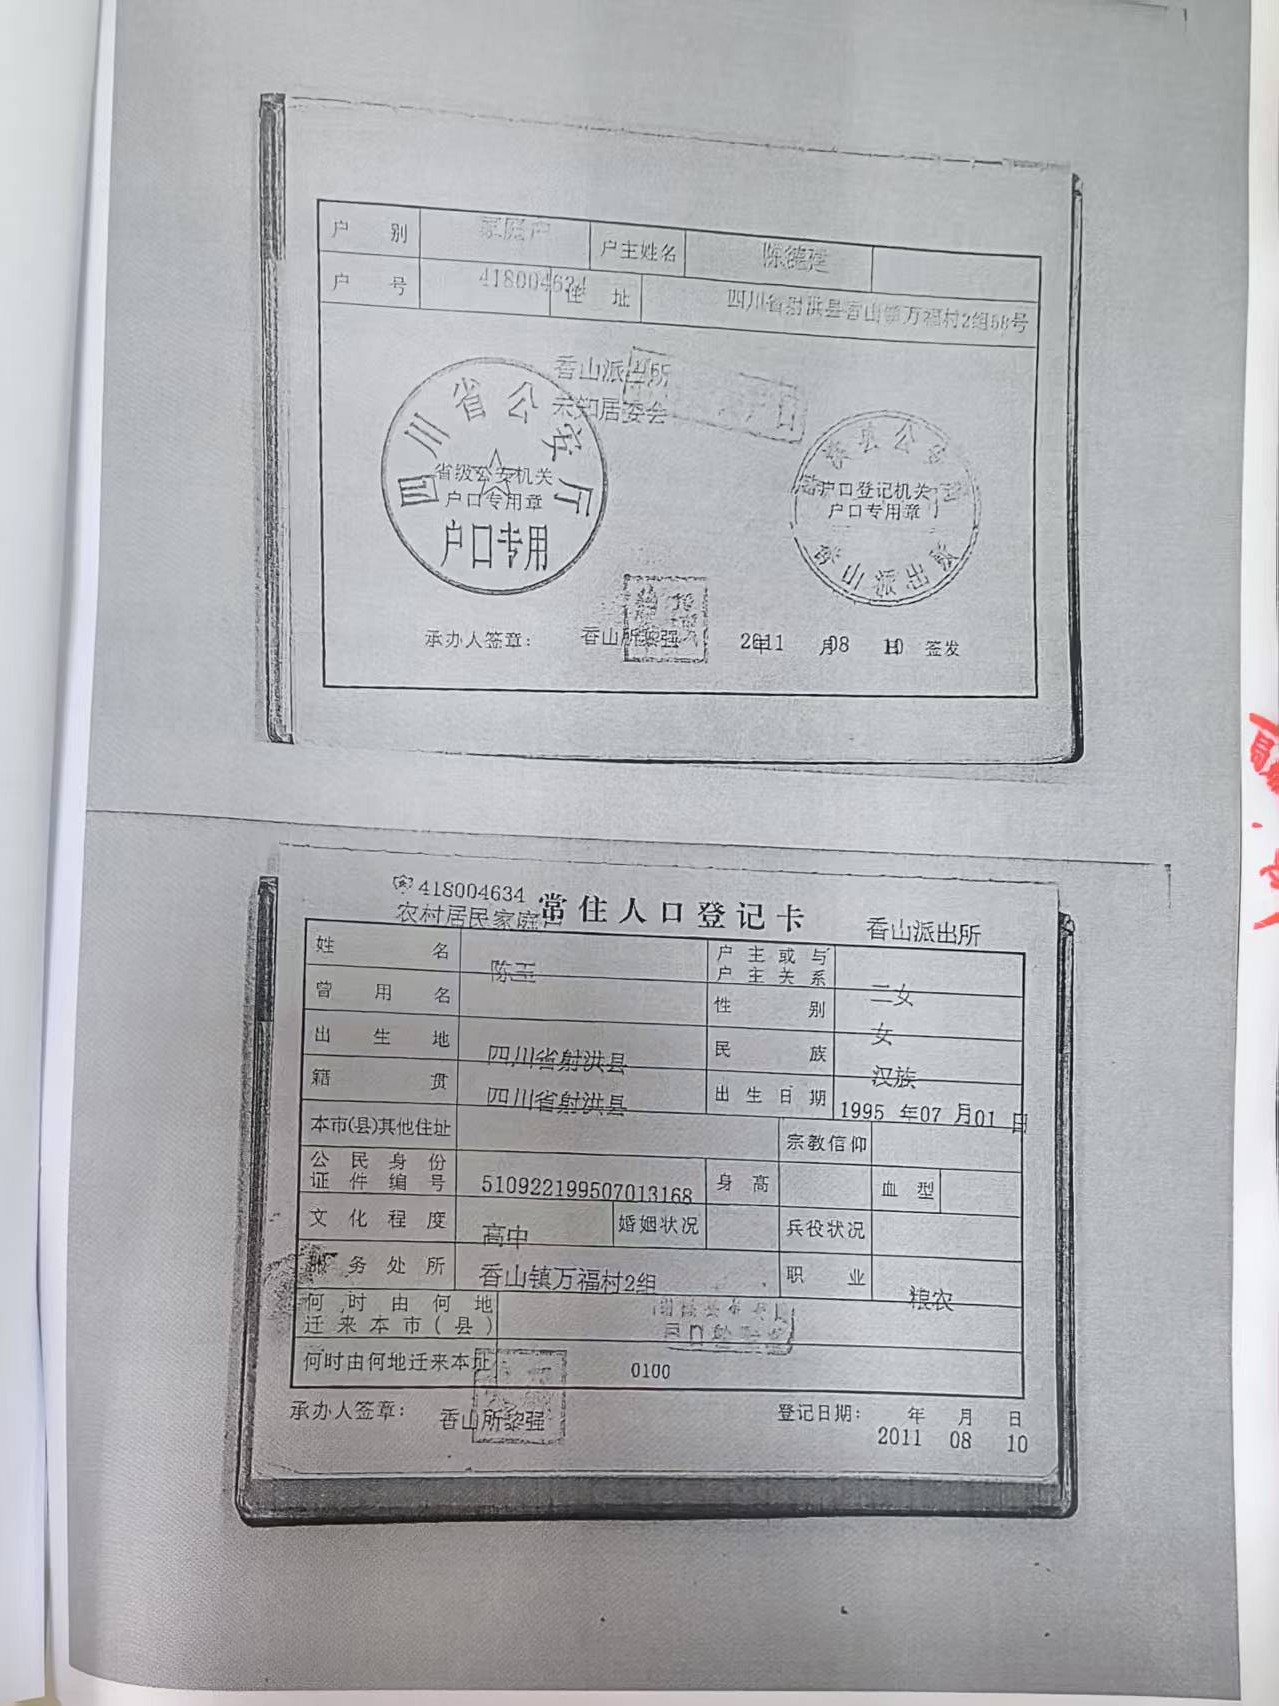 户 别 家庭户 户主姓名 陈德建
户 号 418004634 住 址 四川省射洪县香山镇万福村2组58号
香山派出所
未知居委会
四川省公安厅
省级公安机关
户口专用章
户口专用
户口登记机关
户口专用章
香山派出所
承办人签章： 香山所黎强 2011年 08月 10日 签发
418004634
农村居民家庭户 常住人口登记卡 香山派出所
姓 名 陈玉 户主或与户主关系 二女
曾用名 性 别 女
出生地 四川省射洪县 民 族 汉族
籍 贯 四川省射洪县 出生日期 1995 年07 月01 日
本市(县)其他住址 宗教信仰
公民身份证件编号 510922199507013168 身 高 血 型
文化程度 高中 婚姻状况 兵役状况
服务处所 香山镇万福村2组 职 业 粮农
何时由何地迁来本市(县)
何时由何地迁来本址 0100
承办人签章： 香山所黎强 登记日期： 年 月 日
2011 08 10